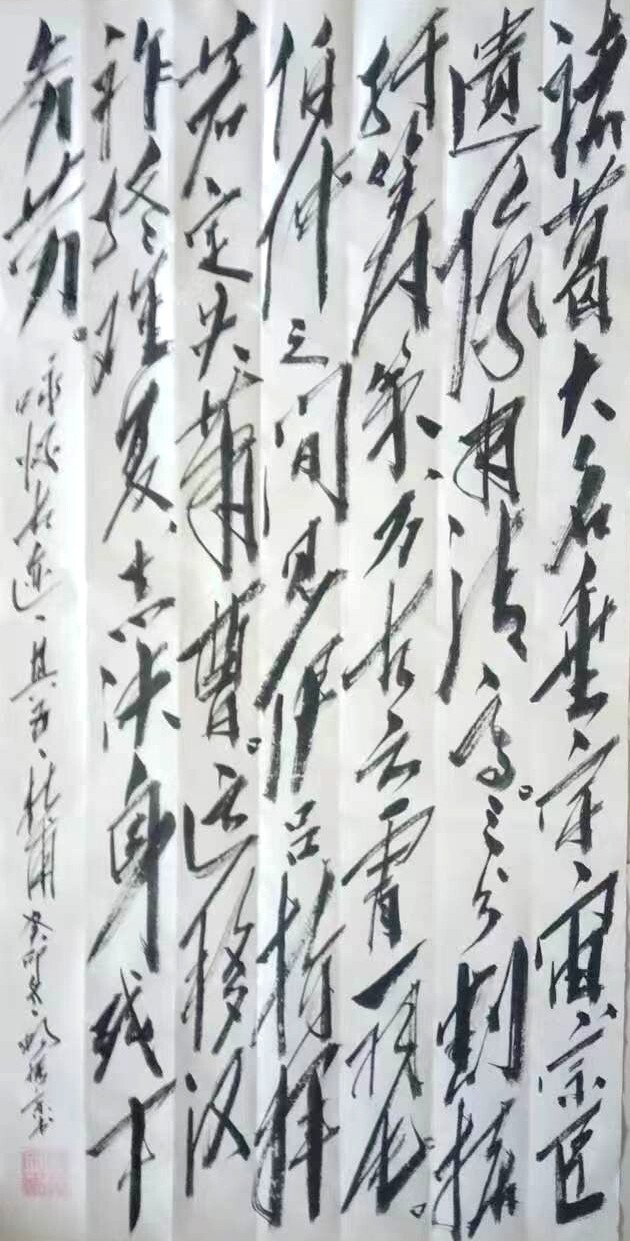 诸葛大名垂宇宙宗臣
遗像肃清高。三分割据
纡筹策、万古云霄一羽毛。
伯仲之间见伊吕指挥
若定失萧曹。运移汉
祚终难复、志决身歼军
务劳。
咏怀古迹、其五、杜甫 癸卯冬